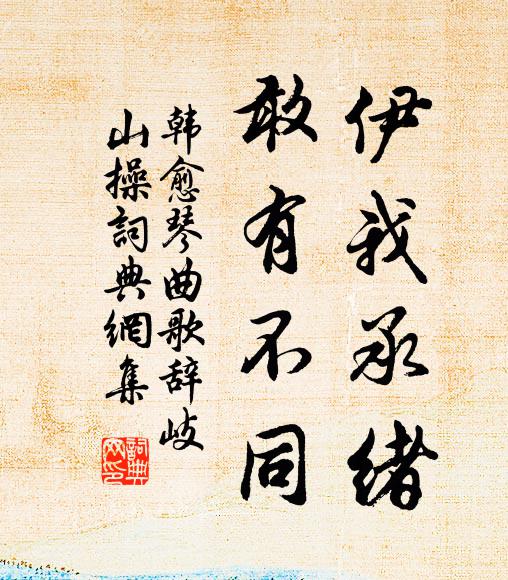 伊我承緒
敢有不同
韩愈琴曲歌辞岐
山操詞典網集
詞典网印